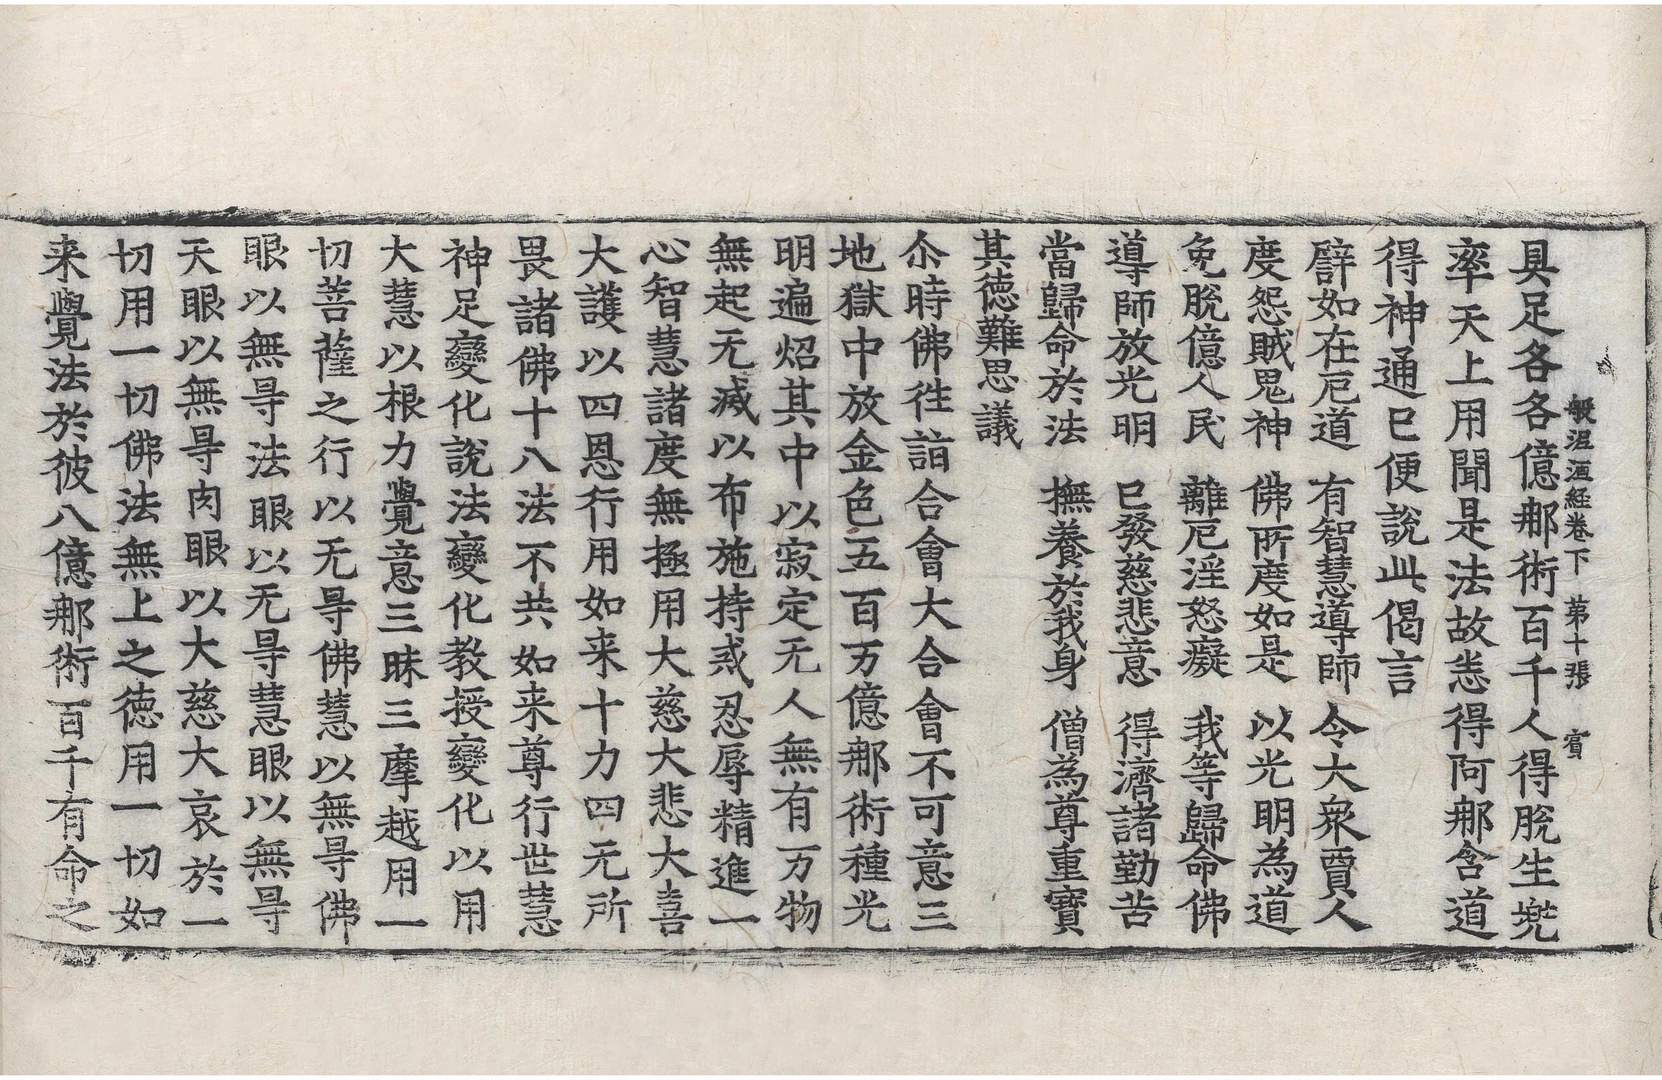 般泥洹経卷下　第十張　賓
具足各各億那術百千人得脫生兜
率天上用聞是法故恙得阿那含道
得神通已便說此偈言
譬如在厄道　有智慧導師　今大衆賈人
度怨賊鬼神　佛所度如是　以光明為道
免脫億人民　離厄淫怒癡　我等歸命佛
導師放光明　已發慈悲意　得濟諸勤苦
當歸命於法　撫養於我身　僧為尊重寶
其德難思議
尒時佛徃詣合會大合會不可意三
地獄中放金色五百万億那術種光
明遍炤其中以寂定无人無有万物
無起无滅以布施持戒忍辱精進一
心智慧諸度無極用大慈大悲大喜
大護以四恩行用如来十力四无所
畏諸佛十八法不共如来尊行世慧
神足變化說法變化教授變化以用
大慧以根力覺意三昧三摩越用一
切菩薩之行以无㝵佛慧以無㝵佛
眼以無㝵法眼以无㝵慧眼以無㝵
天眼以無㝵肉眼以大慈大哀於一
切用一切佛法無上之德用一切如
来覺法於彼八億那術百千有命之